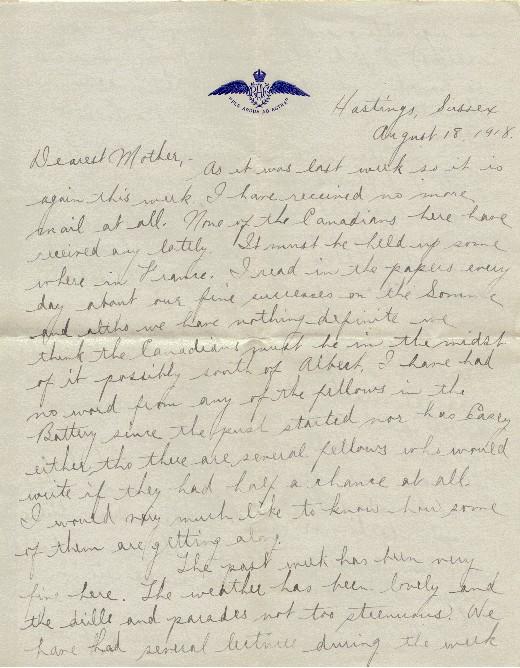 RFC
PER ARDUA AD ASTRA
Hastings, Sussex
August 18, 1918.
Dearest Mother,-
As it was last week so it is
again this week. I have received no more
mail at all. None of the Canadians here have
received any lately. It must be held up some
where in France. I read in the papers every
day about our fine successes on the Somme
and altho we have nothing definite we
think the Canadians must be in the midst
of it possibly south of Albert. I have had
no word from any of the fellows in the
Battery since the push started nor has Casey
either tho there are several fellows who would
write if they had half a chance at all.
I would very much like to know how some
of them are getting along.
The past week has been very
fine here. The weather has been lovely and
the drills and parades not too strenuous. We
have had several lectures during the week